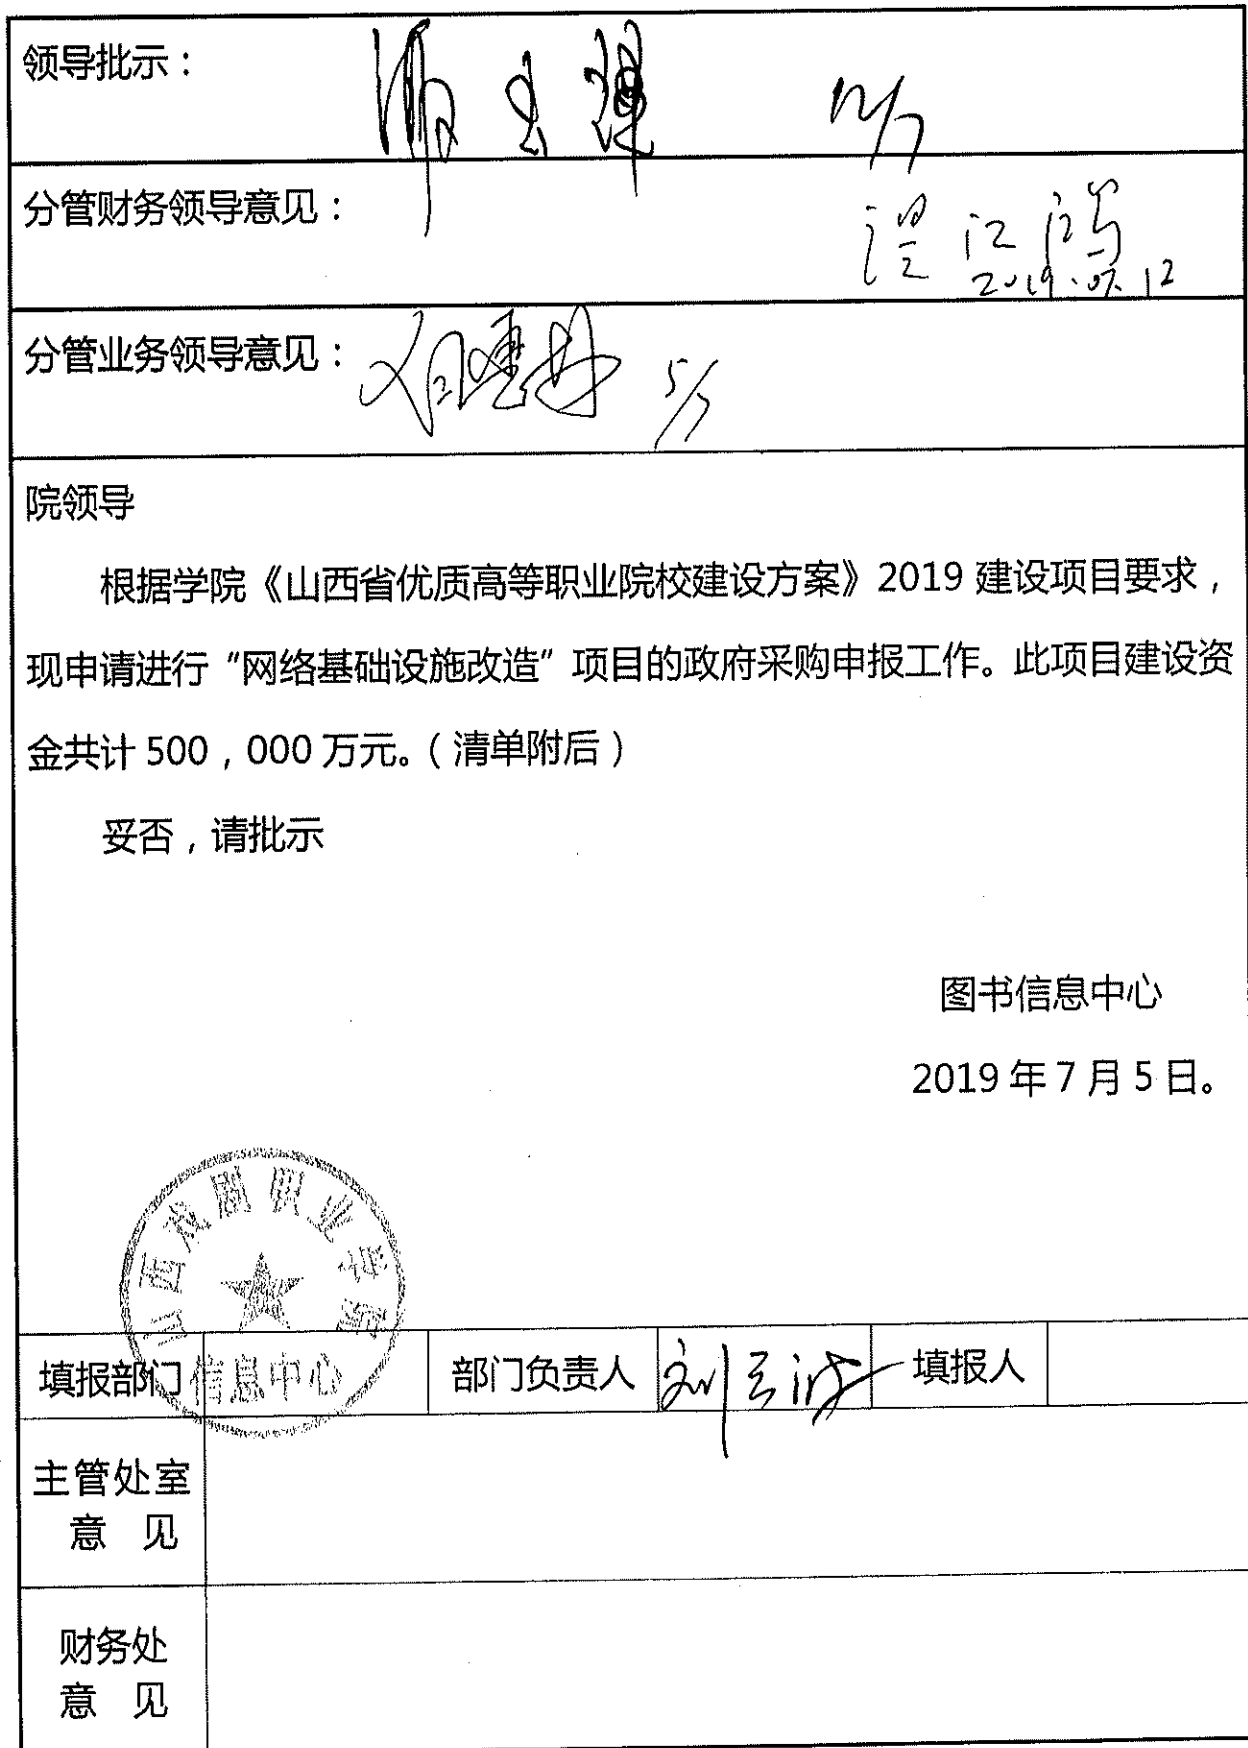 领导批示：
12/7
分管财务领导意见：
2019.07.12
分管业务领导意见：
5/7
院领导
根据学院《山西省优质高等职业院校建设方案》2019 建设项目要求，
现申请进行“网络基础设施改造”项目的政府采购申报工作。此项目建设资
金共计 500，000 万元。（清单附后）
妥否，请批示
图书信息中心
2019 年 7 月 5 日。
山西戏剧职业学院
信息中心
填报部门 部门负责人 填报人
主管处室
意 见
财务处
意 见